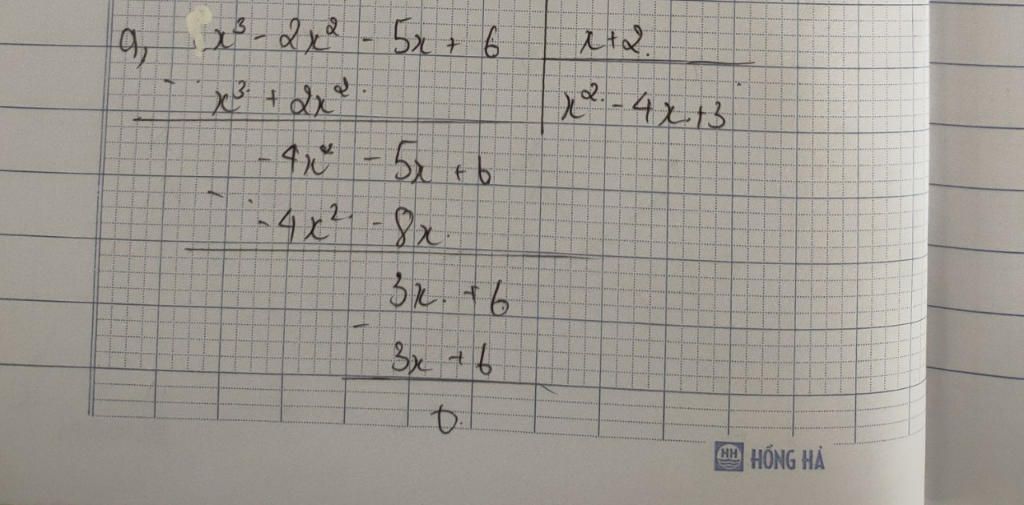 a, x³ - 2x² - 5x + 6 | x + 2
- x³ + 2x² | x² - 4x + 3
-4x² - 5x + 6
- -4x² - 8x
3x + 6
- 3x + 6
0
HH HỒNG HÀ